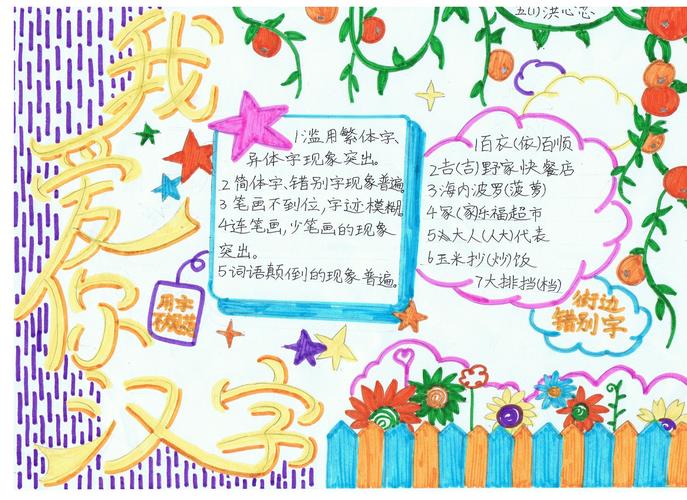 五(1)洪心恋
我爱你汉字
1.滥用繁体字、
异体字现象突出。
2 简体字、错别字现象普遍。
3 笔画不到位,字迹模糊。
4连笔画,少笔画的现象
突出。
5词语颠倒的现象普遍。
用字
不规范
1百衣(依)百顺
2吉(吉)野家快餐店
3海内波罗(菠萝)
4家(家)乐福超市
5大人(人大)代表
6玉米抄(炒)饭
7大排挡(档)
街边
错别字